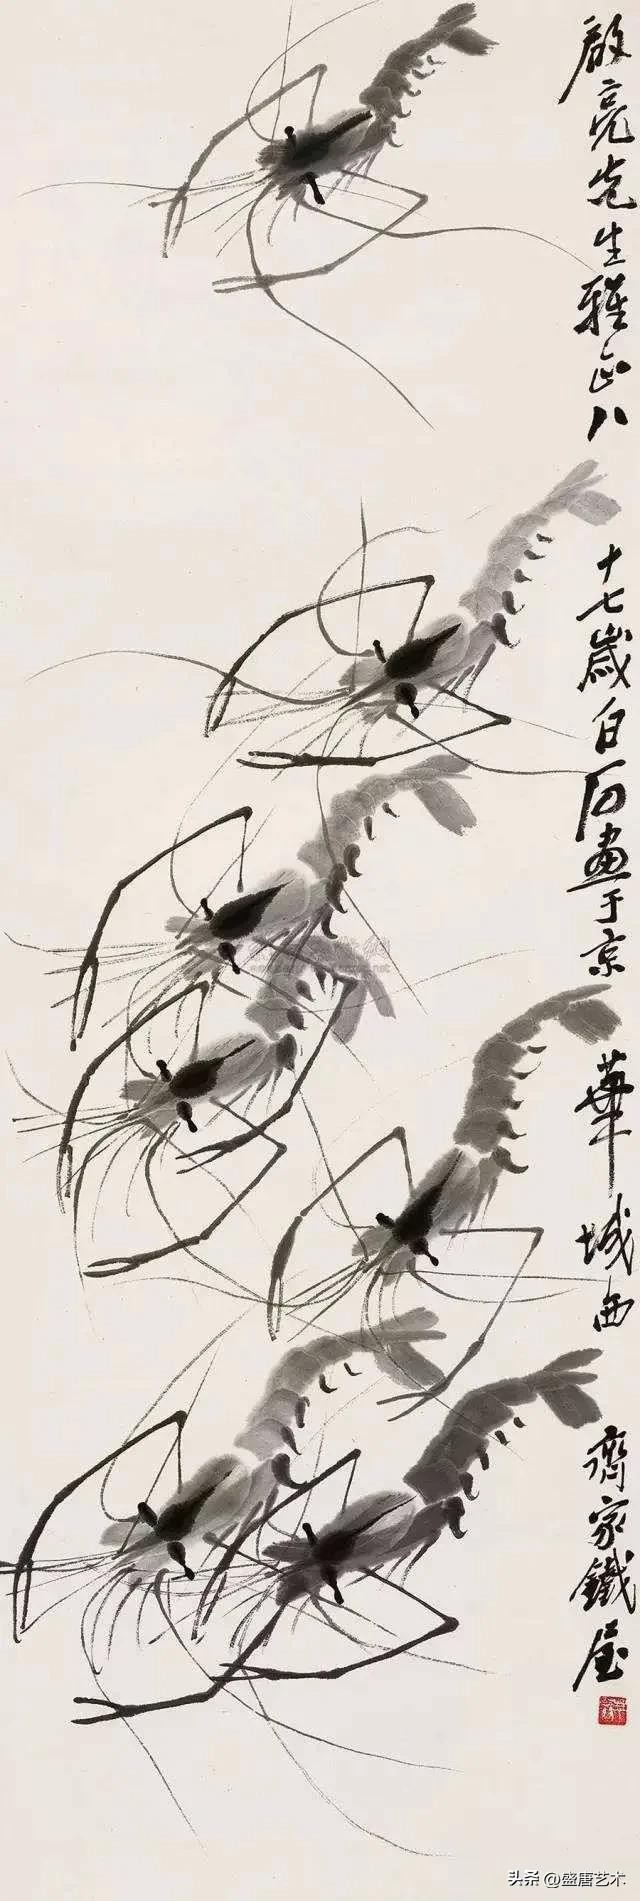 啟亮先生雅正八十七歲白石畫于京華城西齊家鐵屋
头条 @盛唐艺术